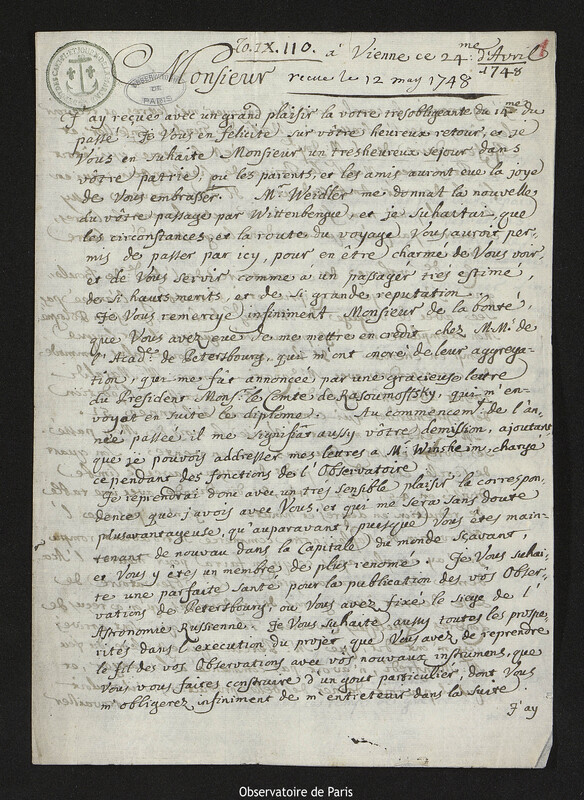 To. IX. 110. à Vienne ce 24.me d'Avril
1748
Monsieur recue le 12 may 1748
OBSERVATOIRE
DE
PARIS
J'ay reçeu avec un grand plaisir la votre tresobligeante du 1me du
passé. Je Vous en felicite sur vôtre heureux retour, et je
Vous en suhaite Monsieur un tresheureux sejour dans
vôtre patrie, ou les parents, et les amis auront eue la joye
de Vous embrasser. Mr. Weidler me donnat la nouvelle
du vôtre passage par Wittenbergue, et je suhaitai que
les circonstances, et la route du voyage Vous auroit per-
mis de passer par icy, pour en être charmé de Vous voir,
et de Vous servir comme a un passager tres estimé,
de si hauts merits, et de si grande reputation.
Je Vous remercie infiniment Monsieur de la bonté,
que Vous avez eue de me mettre en credit chez M.M. de
l'Acad. de Petersbourg, qui m'ont onoré de leur aggrega-
tion, qui me fat annoncée par une gracieuse lettre
du President Mons. le Comte de Rasoumofsky, qui m'en-
voyat en suite le diplome. Au commencemt. de l'an-
née passée il me signifiat aussy vôtre demission, ajoutant
que je pouvois addresser mes lettres a Mr. Winsheim, chargé
cependant des fonctions de l'Observatoire
Je reprendrai donc avec un tres sensible plaisir la correspon-
dence que j'avois avec Vous, et qui me sera sans doute
plusavantageuse, qu'auparavant, puisque Vous êtes main-
tenant de nouveau dans la Capitale du monde sçavant,
et Vous y êtes un membre de plus renomé. Je Vous suhai-
te une parfaite santé pour la publication des vôs Obser-
vations de Petersbourg, ou Vous avez fixé le siege de l'
Astronomie Russienne. Je Vous suhaite aussy toutes les prospe-
rités dans l'execution du projet, que Vous avez de reprendre
le fil des vos Observations avec vos nouvaux instrumens, que
Vous vous faites construire d'un gout particulier, dont Vous
m'obligerez infiniment de m'entreteur dans la suite.
J'ay
Observatoire de Paris